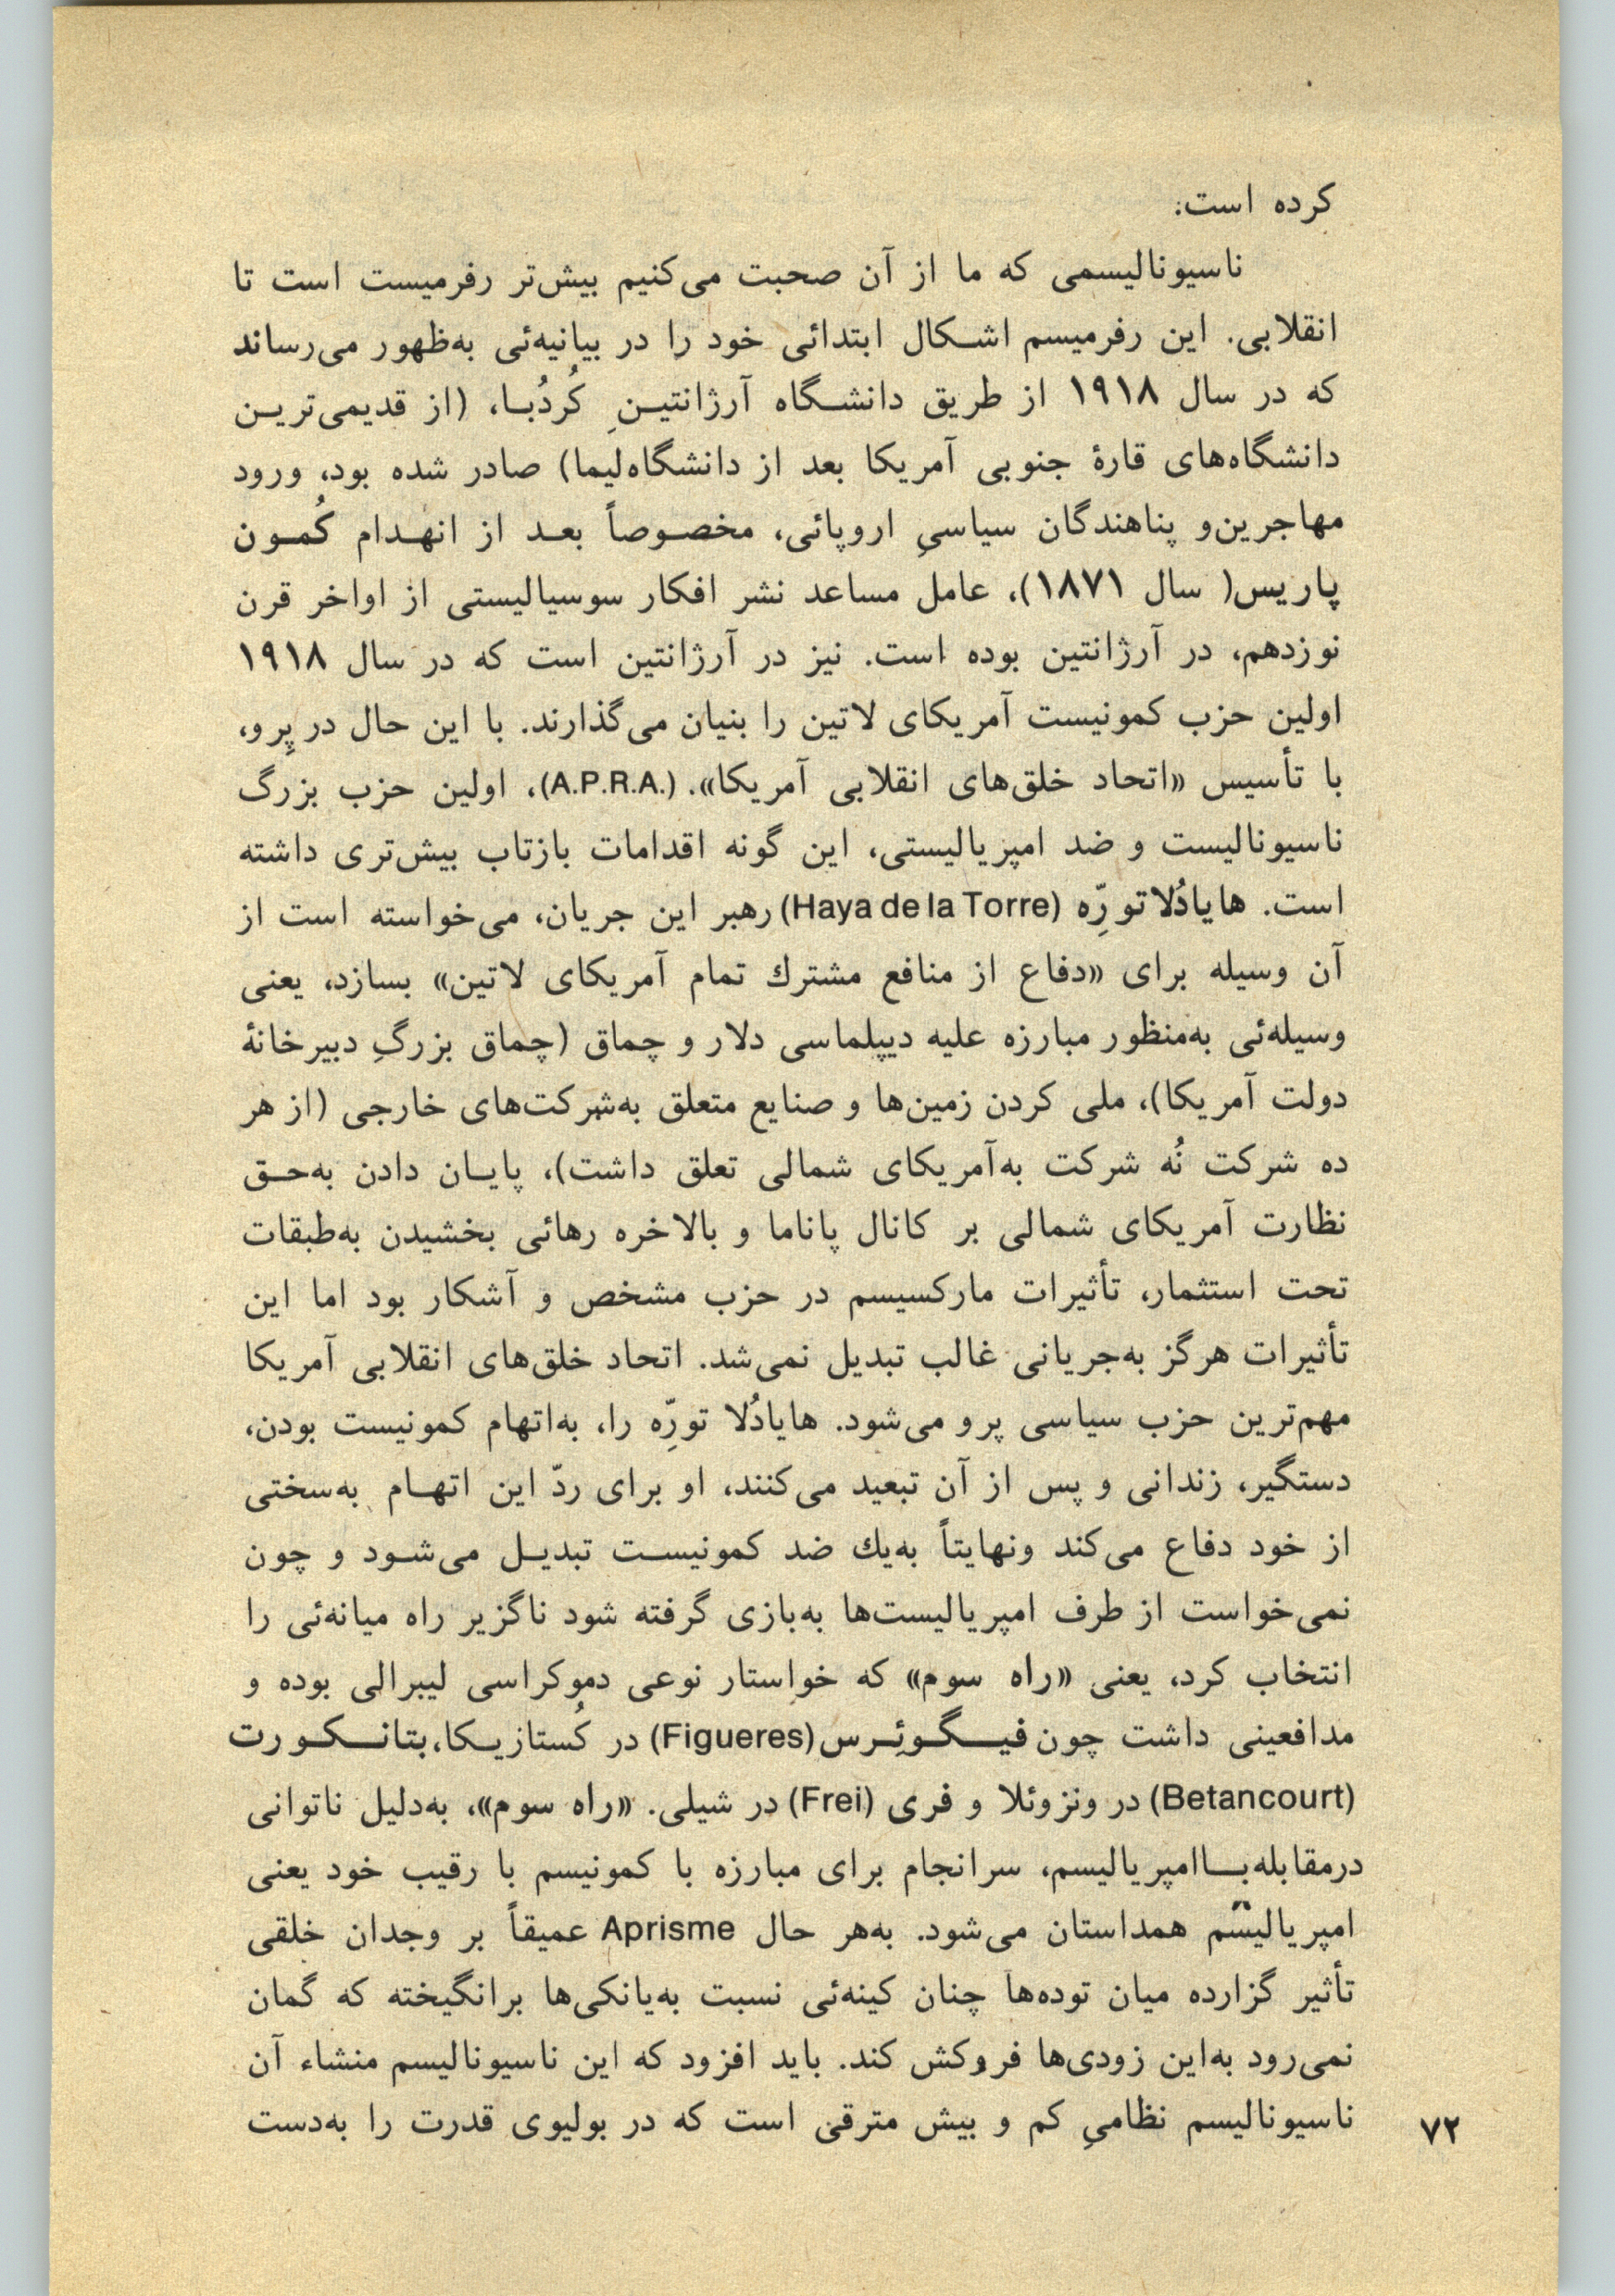 کرده است:
ناسیونالیسمی که ما از آن صحبت می‌کنیم بیش‌تر رفرمیست است تا
انقلابی. این رفرمیسم اشکال ابتدائی خود را در بیانیه‌ئی به‌ظهور می‌رساند
که در سال ۱۹۱۸ از طریق دانشگاه آرژانتینِ کُردُبا، (از قدیمی‌ترین
دانشگاه‌های قارهٔ جنوبی آمریکا بعد از دانشگاه‌لیما) صادر شده بود، ورود
مهاجرین‌و پناهندگان سیاسیِ اروپائی، مخصوصاً بعد از انهدام کُمون
پاریس( سال ۱۸۷۱)، عامل مساعد نشر افکار سوسیالیستی از اواخر قرن
نوزدهم، در آرژانتین بوده است. نیز در آرژانتین است که در سال ۱۹۱۸
اولین حزب کمونیست آمریکای لاتین را بنیان می‌گذارند. با این حال در پِرو،
با تأسیس «اتحاد خلق‌های انقلابی آمریکا». (A.P.R.A.)، اولین حزب بزرگ
ناسیونالیست و ضد امپریالیستی، این گونه اقدامات بازتاب بیش‌تری داشته
است. هایادُلاتورِّه (Haya de la Torre) رهبر این جریان، می‌خواسته است از
آن وسیله برای «دفاع از منافع مشترك تمام آمریکای لاتین» بسازد، یعنی
وسیله‌ئی به‌منظور مبارزه علیه دیپلماسی دلار و چماق (چماق بزرگِ دبیرخانهٔ
دولت آمریکا)، ملی کردن زمین‌ها و صنایع متعلق به‌شرکت‌های خارجی (از هر
ده شرکت نُه شرکت به‌آمریکای شمالی تعلق داشت)، پایان دادن به‌حق
نظارت آمریکای شمالی بر کانال پاناما و بالاخره رهائی بخشیدن به‌طبقات
تحت استثمار، تأثیرات مارکسیسم در حزب مشخص و آشکار بود اما این
تأثیرات هرگز به‌جریانی غالب تبدیل نمی‌شد. اتحاد خلق‌های انقلابی آمریکا
مهم‌ترین حزب سیاسی پرو می‌شود. هایادُلا تورِّه را، به‌اتهام کمونیست بودن،
دستگیر، زندانی و پس از آن تبعید می‌کنند، او برای ردّ این اتهام به‌سختی
از خود دفاع می‌کند ونهایتاً به‌یك ضد کمونیست تبدیل می‌شود و چون
نمی‌خواست از طرف امپریالیست‌ها به‌بازی گرفته شود ناگزیر راه میانه‌ئی را
انتخاب کرد، یعنی «راه سوم» که خواستار نوعی دموکراسی لیبرالی بوده و
مدافعینی داشت چون فیگوئِرس (Figueres) در کُستاریکا، بتانکورت
(Betancourt) در ونزوئلا و فری (Frei) در شیلی. «راه سوم»، به‌دلیل ناتوانی
درمقابله‌باامپریالیسم، سرانجام برای مبارزه با کمونیسم با رقیب خود یعنی
امپریالیسم همداستان می‌شود. به‌هر حال Aprisme عمیقاً بر وجدان خلقی
تأثیر گزارده میان توده‌ها چنان کینه‌ئی نسبت به‌یانکی‌ها برانگیخته که گمان
نمی‌رود به‌این زودی‌ها فروکش کند. باید افزود که این ناسیونالیسم منشاء آن
ناسیونالیسم نظامیِ کم و بیش مترقی است که در بولیوی قدرت را به‌دست
۷۲